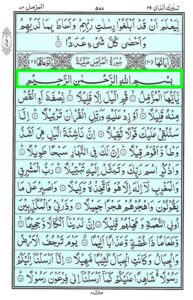 تبرك الذي ٢٩
٥٨٨
المزمل ٧٣
لِيَعْلَمَ أَنْ قَدْ أَبْلَغُوا رِسَالَاتِ رَبِّهِمْ وَأَحَاطَ بِمَا لَدَيْهِمْ
وَأَحْصَىٰ كُلَّ شَيْءٍ عَدَدًا
سُورَةُ الْمُزَّمِّلِ مَكِّيَّةٌ
بِسْمِ اللَّهِ الرَّحْمَٰنِ الرَّحِيمِ
يَا أَيُّهَا الْمُزَّمِّلُ قُمِ اللَّيْلَ إِلَّا قَلِيلًا نِصْفَهُ أَوِ انْقُصْ
مِنْهُ قَلِيلًا أَوْ زِدْ عَلَيْهِ وَرَتِّلِ الْقُرْآنَ تَرْتِيلًا إِنَّا
سَنُلْقِي عَلَيْكَ قَوْلًا ثَقِيلًا إِنَّ نَاشِئَةَ اللَّيْلِ هِيَ أَشَدُّ
وَطْئًا وَأَقْوَمُ قِيلًا إِنَّ لَكَ فِي النَّهَارِ سَبْحًا طَوِيلًا
وَاذْكُرِ اسْمَ رَبِّكَ وَتَبَتَّلْ إِلَيْهِ تَبْتِيلًا رَبُّ الْمَشْرِقِ
وَالْمَغْرِبِ لَا إِلَٰهَ إِلَّا هُوَ فَاتَّخِذْهُ وَكِيلًا وَاصْبِرْ عَلَىٰ مَا
يَقُولُونَ وَاهْجُرْهُمْ هَجْرًا جَمِيلًا وَذَرْنِي وَالْمُكَذِّبِينَ
أُولِي النَّعْمَةِ وَمَهِّلْهُمْ قَلِيلًا إِنَّ لَدَيْنَا أَنْكَالًا وَجَحِيمًا
وَطَعَامًا ذَا غُصَّةٍ وَعَذَابًا أَلِيمًا يَوْمَ تَرْجُفُ الْأَرْضُ
وَالْجِبَالُ وَكَانَتِ الْجِبَالُ كَثِيبًا مَهِيلًا إِنَّا أَرْسَلْنَا إِلَيْكُمْ
رَسُولًا شَاهِدًا عَلَيْكُمْ كَمَا أَرْسَلْنَا إِلَىٰ فِرْعَوْنَ رَسُولًا